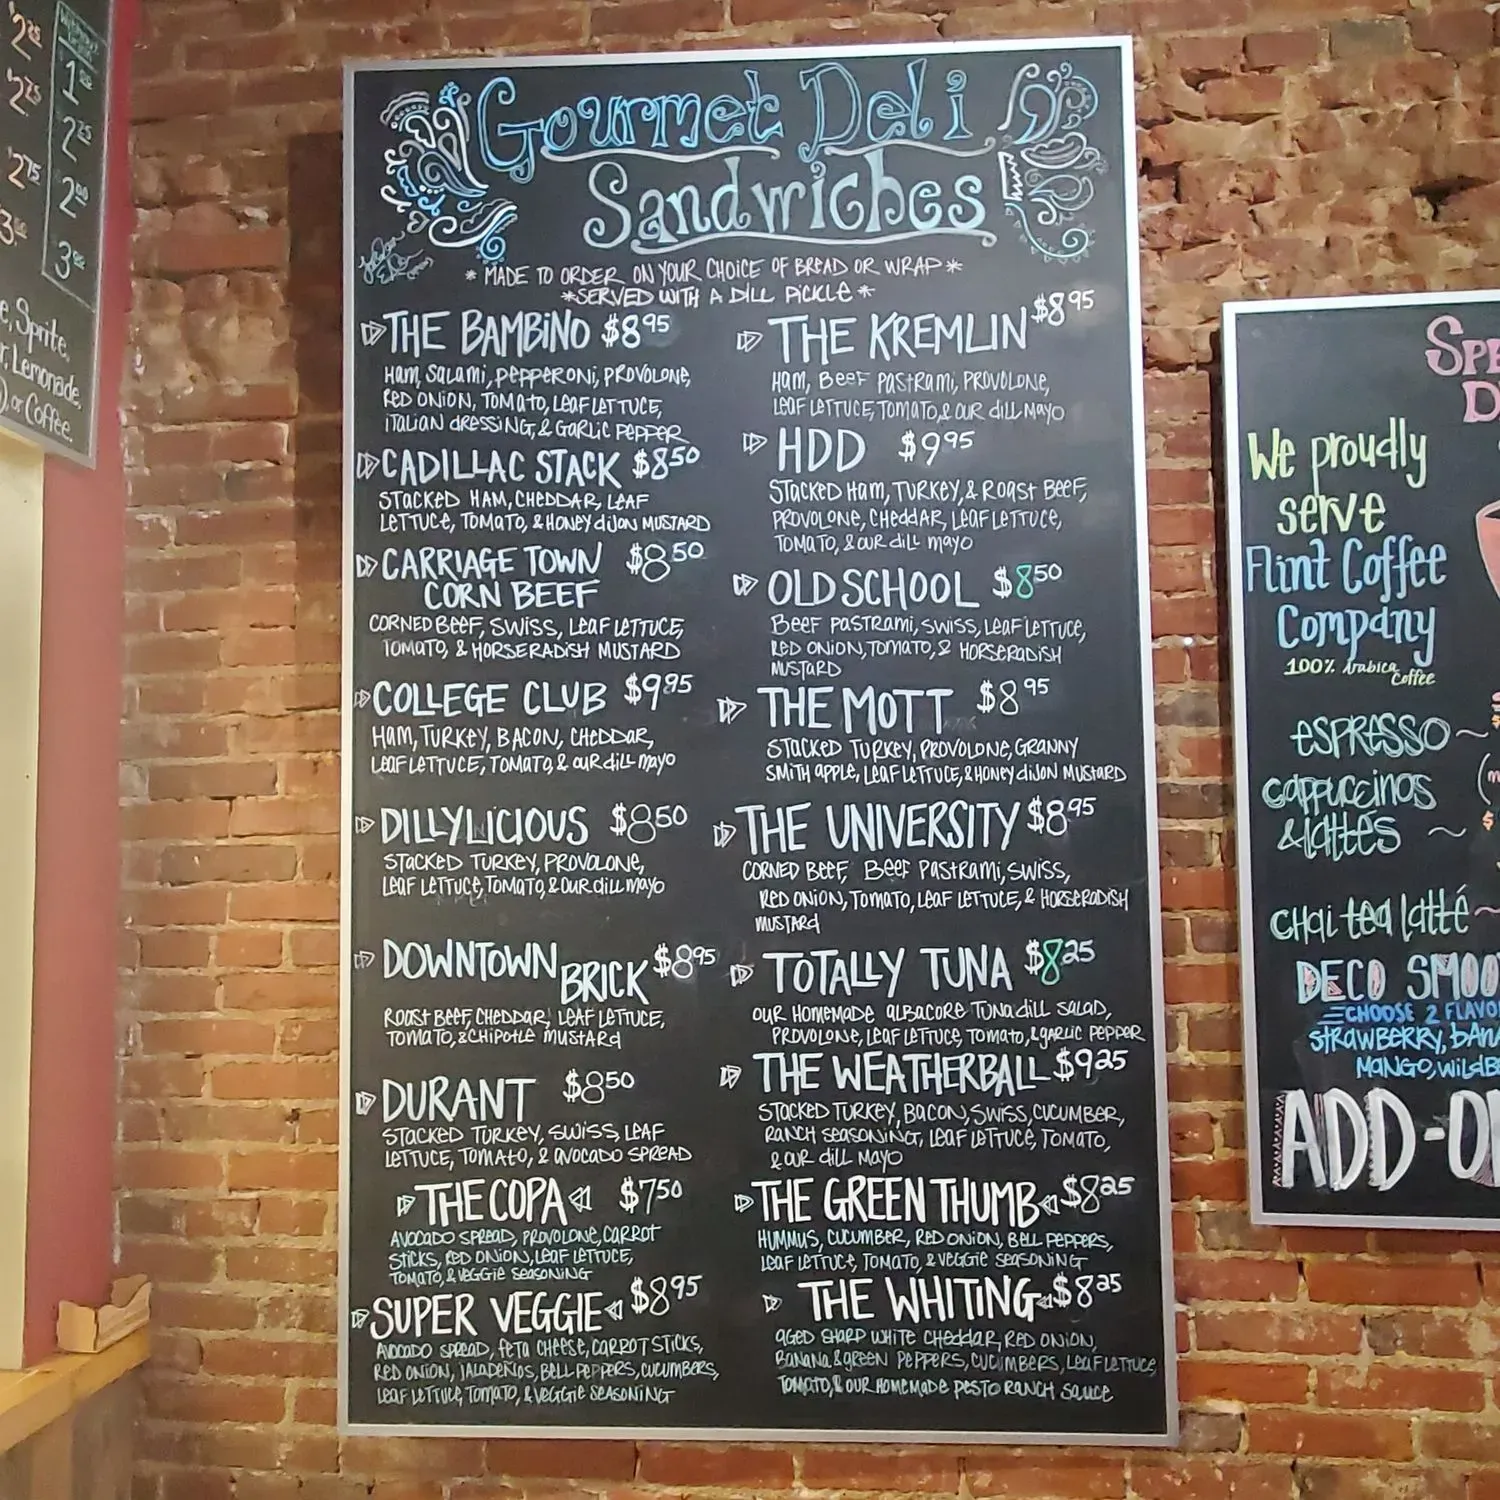 2 25
2 75
2 75
3 00
1
2 25
2 00
3 00
e, Sprite,
r, Lemonade,
), or Coffee.
Gourmet Deli
Sandwiches
* MADE TO ORDER ON YOUR CHOICE OF BREAD OR WRAP *
*SERVED WITH A DILL PICKLE *
THE BAMBINO $8.95
HAM, SALAMI, PEPPERONI, PROVOLONE,
RED ONION, TOMATO, LEAF LETTUCE,
ITALIAN DRESSING, & GARLIC PEPPER
CADILLAC STACK $8.50
STACKED HAM, CHEDDAR, LEAF
LETTUCE, TOMATO, & HONEY DIJON MUSTARD
CARRIAGE TOWN $8.50
CORN BEEF
CORNED BEEF, SWISS, LEAF LETTUCE,
TOMATO, & HORSERADISH MUSTARD
COLLEGE CLUB $9.95
HAM, TURKEY, BACON, CHEDDAR,
LEAF LETTUCE, TOMATO, & OUR DILL MAYO
DILLYLICIOUS $8.50
STACKED TURKEY, PROVOLONE,
LEAF LETTUCE, TOMATO, & OUR DILL MAYO
DOWNTOWN BRICK $8.95
ROAST BEEF, CHEDDAR, LEAF LETTUCE,
TOMATO, & CHIPOTLE MUSTARD
DURANT $8.50
STACKED TURKEY, SWISS, LEAF
LETTUCE, TOMATO, & AVOCADO SPREAD
THE COPA $7.50
AVOCADO SPREAD, PROVOLONE, CARROT
STICKS, RED ONION, LEAF LETTUCE,
TOMATO, & VEGGIE SEASONING
SUPER VEGGIE $8.95
AVOCADO SPREAD, FETA CHEESE, CARROT STICKS,
RED ONION, JALAPEÑOS, BELL PEPPERS, CUCUMBERS,
LEAF LETTUCE, TOMATO, & VEGGIE SEASONING
THE KREMLIN $8.95
HAM, BEEF PASTRAMI, PROVOLONE,
LEAF LETTUCE, TOMATO, & OUR DILL MAYO
HDD $9.95
STACKED HAM, TURKEY, & ROAST BEEF,
PROVOLONE, CHEDDAR, LEAF LETTUCE,
TOMATO, & OUR DILL MAYO
OLD SCHOOL $8.50
BEEF PASTRAMI, SWISS, LEAF LETTUCE,
RED ONION, TOMATO, & HORSERADISH
MUSTARD
THE MOTT $8.95
STACKED TURKEY, PROVOLONE, GRANNY
SMITH APPLE, LEAF LETTUCE, & HONEY DIJON MUSTARD
THE UNIVERSITY $8.95
CORNED BEEF, BEEF PASTRAMI, SWISS,
RED ONION, TOMATO, LEAF LETTUCE, & HORSERADISH
MUSTARD
TOTALLY TUNA $8.25
OUR HOMEMADE ALBACORE TUNA DILL SALAD,
PROVOLONE, LEAF LETTUCE, TOMATO, & GARLIC PEPPER
THE WEATHERBALL $9.25
STACKED TURKEY, BACON, SWISS, CUCUMBER,
RANCH SEASONING, LEAF LETTUCE, TOMATO,
& OUR DILL MAYO
THE GREEN THUMB $8.25
HUMMUS, CUCUMBER, RED ONION, BELL PEPPERS,
LEAF LETTUCE, TOMATO, & VEGGIE SEASONING
THE WHITING $8.25
AGED SHARP WHITE CHEDDAR, RED ONION,
BANANA & GREEN PEPPERS, CUCUMBERS, LEAF LETTUCE,
TOMATO, & OUR HOMEMADE PESTO RANCH SAUCE
SPE
D
We proudly
serve
Flint Coffee
Company
100% Arabica
Coffee
ESPRESSO ~
CAPPUCCINOS
& LATTES ~
CHAI TEA LATTÉ ~
DECO SMOO
CHOOSE 2 FLAVO
STRAWBERRY, BANA
MANGO, WILDBE
ADD-O